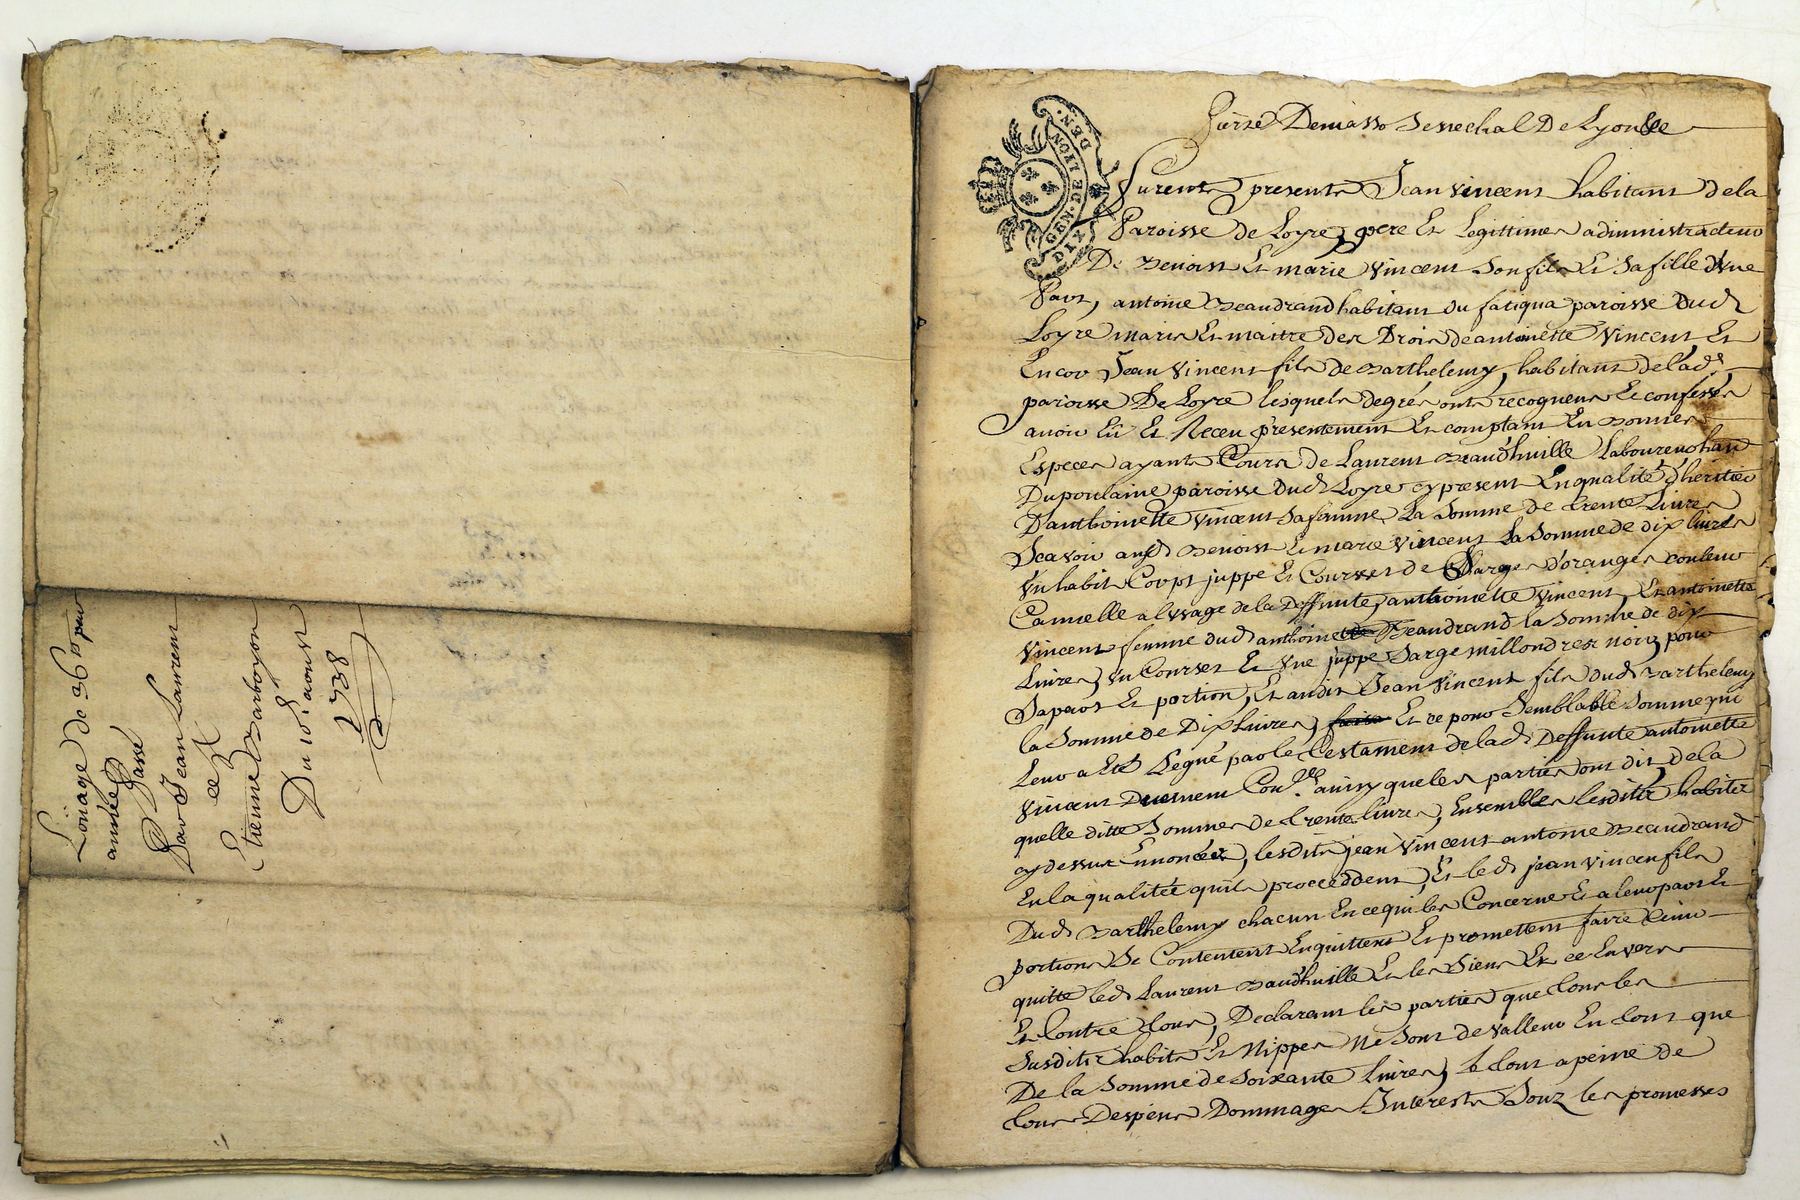 Loüage de 36ᵗᵗ par
année
Passé
Par Jean Laurent
a
Etienne Barboyon
Du 10ᵉ aoust
1738
GEN. DE LYON.
DIX DEN.
Senechal De Lyon
Furent presents Jean Vincent habitant de la
Paroisse de Loyre, pere Et Legittime administrateur
De Benoist Et marie Vincent son fils Et sa fille d'Vne
Part, antoine Beaudrand habitant du fatiqua paroisse dud
Loyre marie Et maitre des Drois de antoinette Vincent Et
Encor Jean Vincent fils de Barthelemy, habitant de lad
paroisse De Loyre lesquels degrés ont recogneus Et confessés
auoir Eü Et Receu presentement Et comptant En Bonnes
Especes ayants Cours de Laurent Baudhuille Laboureur
Dupoulaine paroisse Dud Loyre cy present En qualité d'heritier
D'anthoinette Vincent sa femme, La somme de trente Livres
Scavoir ausd Benoist Et marie Vincent La somme de dix livres
Vn habit Corps juppe Et Courset de Sarge d'orange couleur
Cannelle a l'Vsage de la Deffunte anthoinette Vincent, Et antoinette
Vincent femme dud anthoine Beaudrand la somme de dix
Liures, Vn Courset Et Vne juppe Sarge millondres noir, pour
Sa part Et portion, Et audit Jean Vincent fils dud Barthelemy
la somme de Dix Liures, Et ce pour Semblable Somme qui
leur a Eté Legué par le testament de lad Deffunte antoinette
Vincent ainsy que les parties ont dit, de la
quelle ditte Somme de trente liures, Ensembles lesdits habits
cy dessus Ennoncés, lesdits jean Vincent antoine Beaudrand
En la qualitée quils proceddent, Et led jean Vincent fils
Dud Barthelemy chacun En ce qui les Concerne Et a leur part Et
portions Se Contentent Enquittent Et promettent faire tenir
quitte led Laurent Baudhuille Et les Siens Et ce Envers
Et Contre tous, Declarant les parties que tous les
Susdits habits Et Nippes Ne Sont de valleur En tout que
De la Somme de Soixante liures, le tout a peine de
tous Despens Dommages Interests Souz les promesses